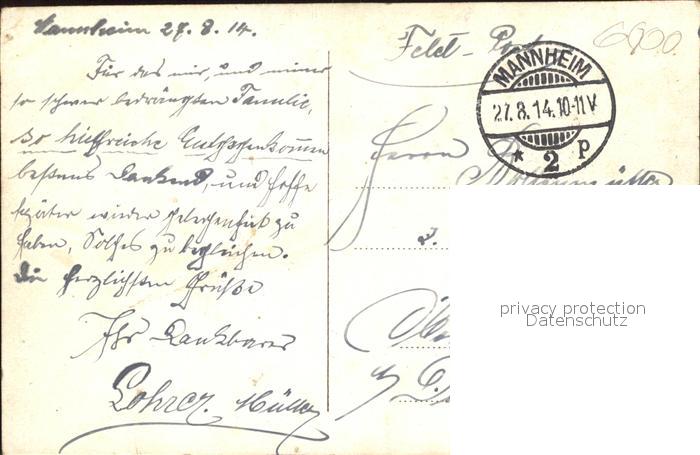 Mannheim 27.8.14.
Für das mir, und meiner
so schwer bedrängten Familie,
so hilfreiche Entgegenkommen
bestens Dankend, und hoffe
später wieder Gelegenheit zu
haben, Solches zu begleichen.
Die herzlichsten Grüße
Ihr Dankbarer
Müller
Feld-Post
6900
MANNHEIM
27.8.14.10-11V
* 2 p
Herrn
privacy protection
Datenschutz